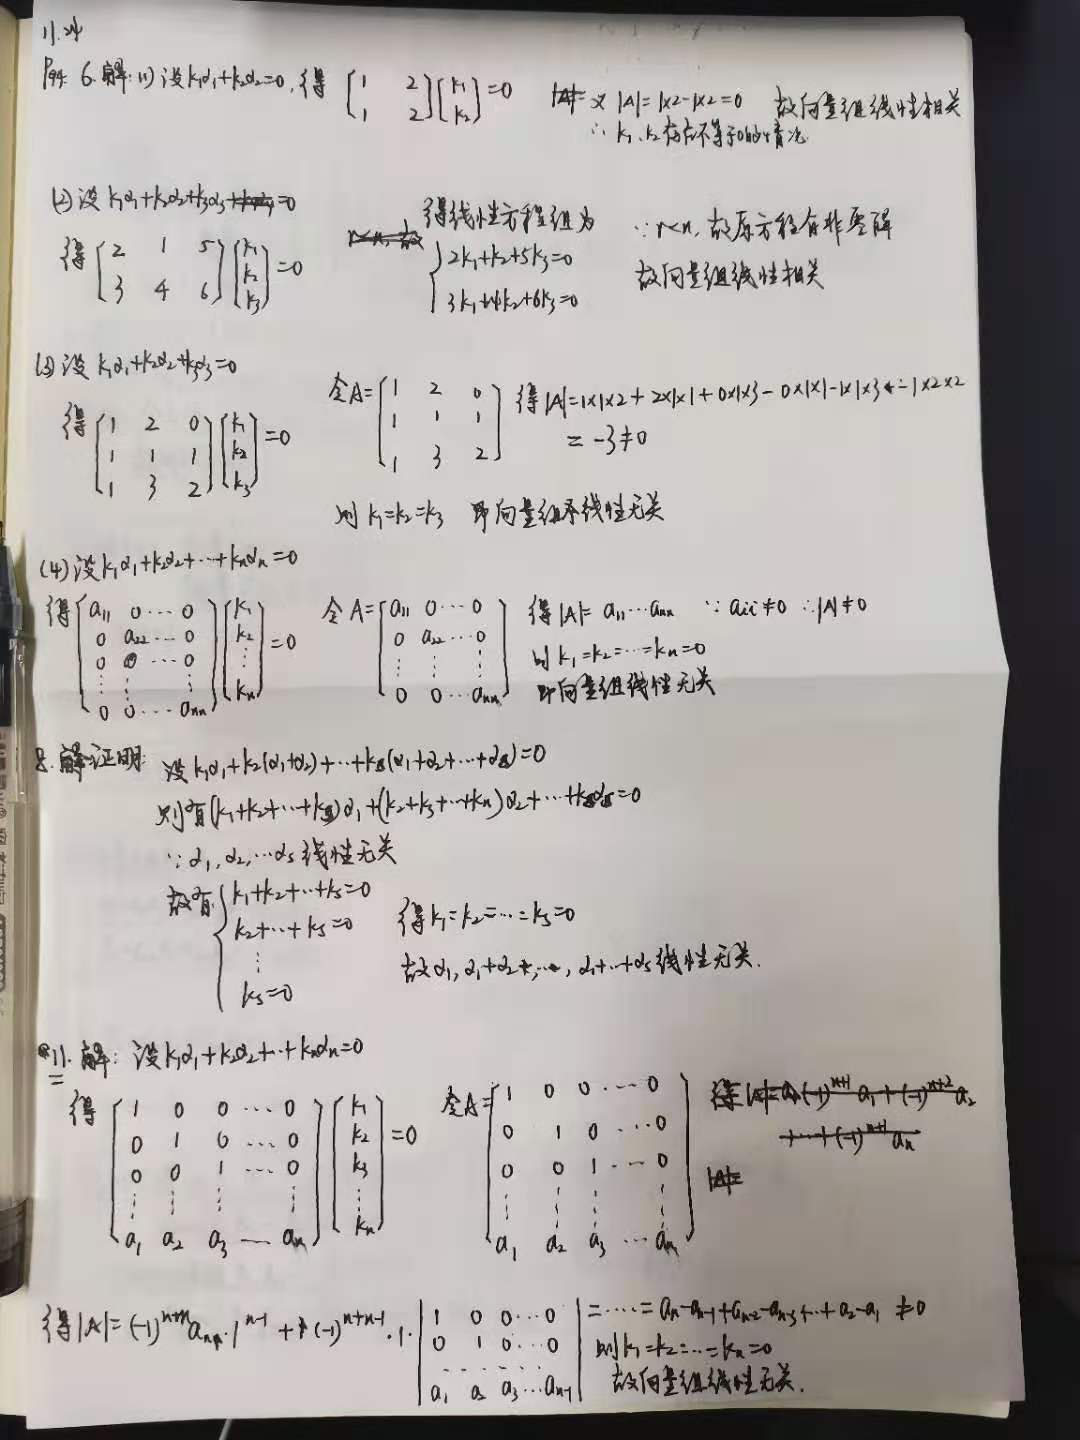 11.24
P94. 6.解:(1)设k₁α₁+k₂α₂=0,得 [1 2; 1 2][k₁; k₂]=0 又|A|=1×2-1×2=0 故向量组线性相关
∴k₁、k₂存在不等于0的情况
(2)设k₁α₁+k₂α₂+k₃α₃=0
得[2 1 5; 3 4 6][k₁; k₂; k₃]=0 得线性方程组为 {2k₁+k₂+5k₃=0; 3k₁+4k₂+6k₃=0 ∵r<n,故原方程有非零解
故向量组线性相关
(3)设k₁α₁+k₂α₂+k₃α₃=0
得[1 2 0; 1 1 1; 1 3 2][k₁; k₂; k₃]=0 令A=[1 2 0; 1 1 1; 1 3 2] 得|A|=1×1×2+2×1×1+0×1×3-0×1×1-1×1×3-1×2×2
=-3≠0
则k₁=k₂=k₃ 即向量组线性无关
(4)设k₁α₁+k₂α₂+…+kₙαₙ=0
得[a₁₁ 0…0; 0 a₂₂…0; 0 0…0; ⋮ ⋮ ⋮; 0 0…aₙₙ][k₁; k₂; ⋮; kₙ]=0 令A=[a₁₁ 0…0; 0 a₂₂…0; ⋮ ⋮ ⋮; 0 0…aₙₙ] 得|A|=a₁₁…aₙₙ ∵aᵢᵢ≠0 ∴|A|≠0
则k₁=k₂=…=kₙ=0
即向量组线性无关
8.证明: 设k₁α₁+k₂(α₁+α₂)+…+kₛ(α₁+α₂+…+αₛ)=0
则有(k₁+k₂+…+kₛ)α₁+(k₂+k₃+…+kₙ)α₂+…+kₛαₛ=0
∵α₁,α₂,…αₛ线性无关
故有{k₁+k₂+…+kₛ=0; k₂+…+kₛ=0; ⋮; kₛ=0 得k₁=k₂=…=kₛ=0
故α₁,α₁+α₂,…,α₁+…+αₛ线性无关.
*11.解:设k₁α₁+k₂α₂+…+kₙαₙ=0
得[1 0 0…0; 0 1 0…0; 0 0 1…0; ⋮ ⋮ ⋮ ⋮; a₁ a₂ a₃…aₙ][k₁; k₂; k₃; ⋮; kₙ]=0 令A=[1 0 0…0; 0 1 0…0; 0 0 1…0; ⋮ ⋮ ⋮ ⋮; a₁ a₂ a₃…aₙ]
得|A|=(-1)ⁿ⁺ⁿaₙ·1ⁿ⁻¹+(-1)ⁿ⁺ⁿ⁻¹·1·|1 0 0…0; 0 1 0…0; ……; a₁ a₂ a₃…aₙ₋₁|=……=aₙ-aₙ₋₁+aₙ₋₂-aₙ₋₃+…+a₂-a₁≠0
则k₁=k₂=…=kₙ=0
故向量组线性无关.